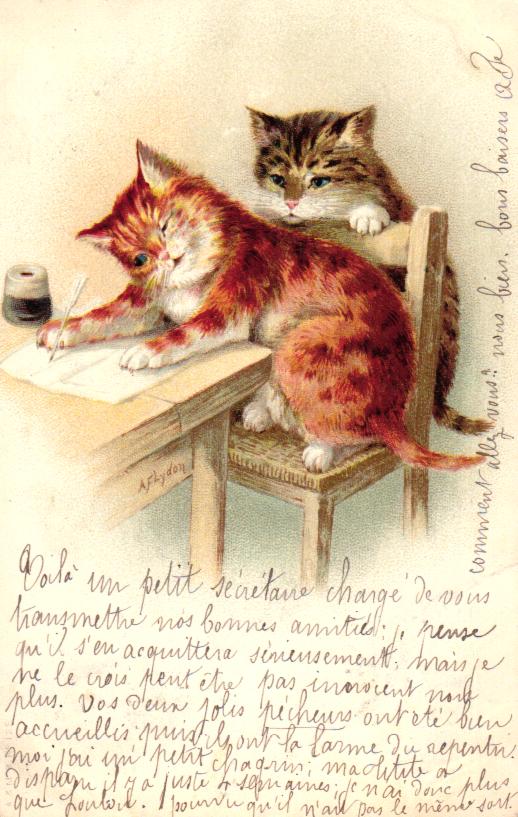 AFLydon
Voilà un petit secrétaire chargé de vous
transmettre nos bonnes amitiés; je pense
qu'il s'en acquittera sérieusement; mais je
ne le crois peut être pas innocent non
plus. Vos deux jolis pécheurs ont été bien
accueillis puisqu'ils ont la larme du repentir.
moi j'ai un petit chagrin; ma Titite a
disparu il y a juste 4 semaines; je n'ai donc plus
que Loulou. pourvu qu'il n'ait pas le même sort.
comment allez vous? nous bien. bons baisers